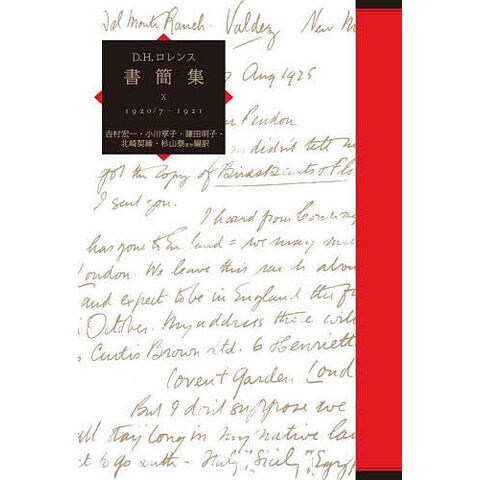 Del Monte Ranch. Valdez New M
Aug 1925
D.H.ロレンス
書簡集
X
1920/7–1921
吉村宏一・小川享子・鎌田明子・
北崎契縁・杉山泰ほか編訳
Pendon
didn't tell m
got the copy of Birds Beasts & Fl
I sent you.
I heard from
has gone to land = we may
London. We leave this ranch abou
and expect to be in England the fi
October. My address there will
Curtis Brown Ltd. 6 Henriett
Covent Garden Lond
But I don't suppose we
all stay long in my native la
to go south – Italy, Sicily, Egyp